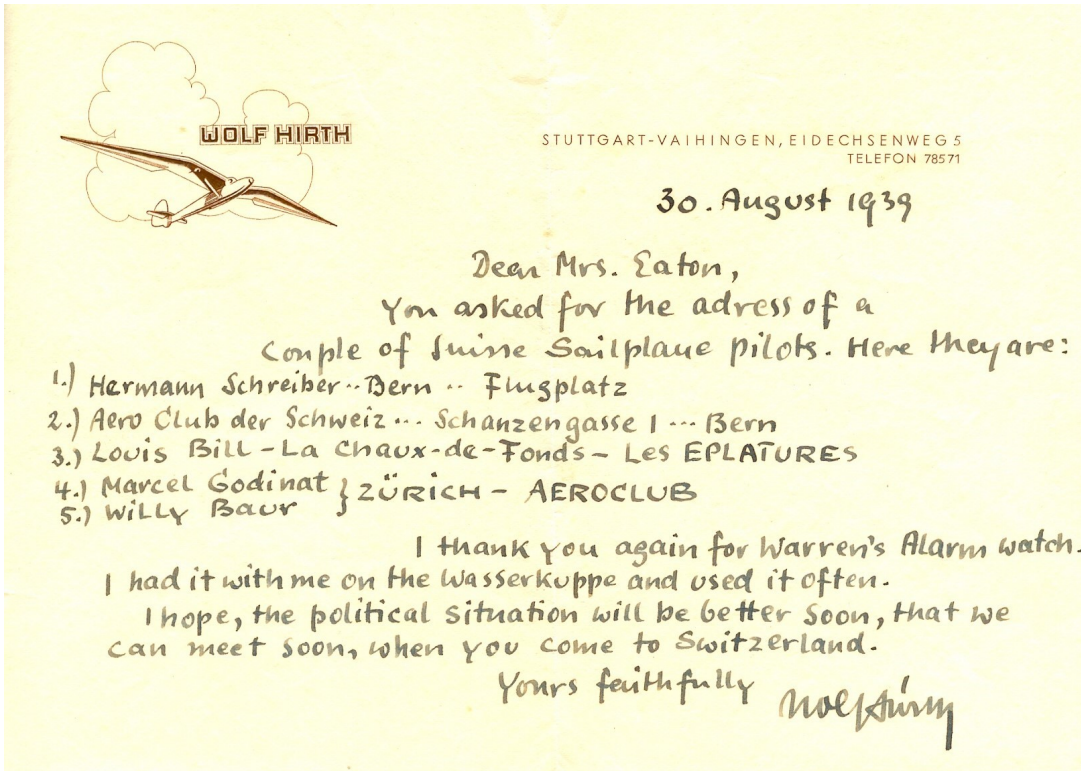 WOLF HIRTH
STUTTGART-VAIHINGEN, EIDECHSENWEG 5
TELEFON 78571
30. August 1939
Dear Mrs. Eaton,
You asked for the adress of a
couple of Suisse Sailplane pilots. Here they are:
1.) Hermann Schreiber·· Bern ·· Flugplatz
2.) Aero Club der Schweiz ··· Schanzengasse 1 ··· Bern
3.) Louis Bill – La Chaux-de-Fonds – Les EPLATURES
4.) Marcel Godinat } ZÜRICH – AEROCLUB
5.) Willy Baur
I thank you again for Warren's Alarm watch.
I had it with me on the Wasserkuppe and used it often.
I hope, the political situation will be better soon, that we
can meet soon, when you come to Switzerland.
Yours faithfully
Wolf Hirth